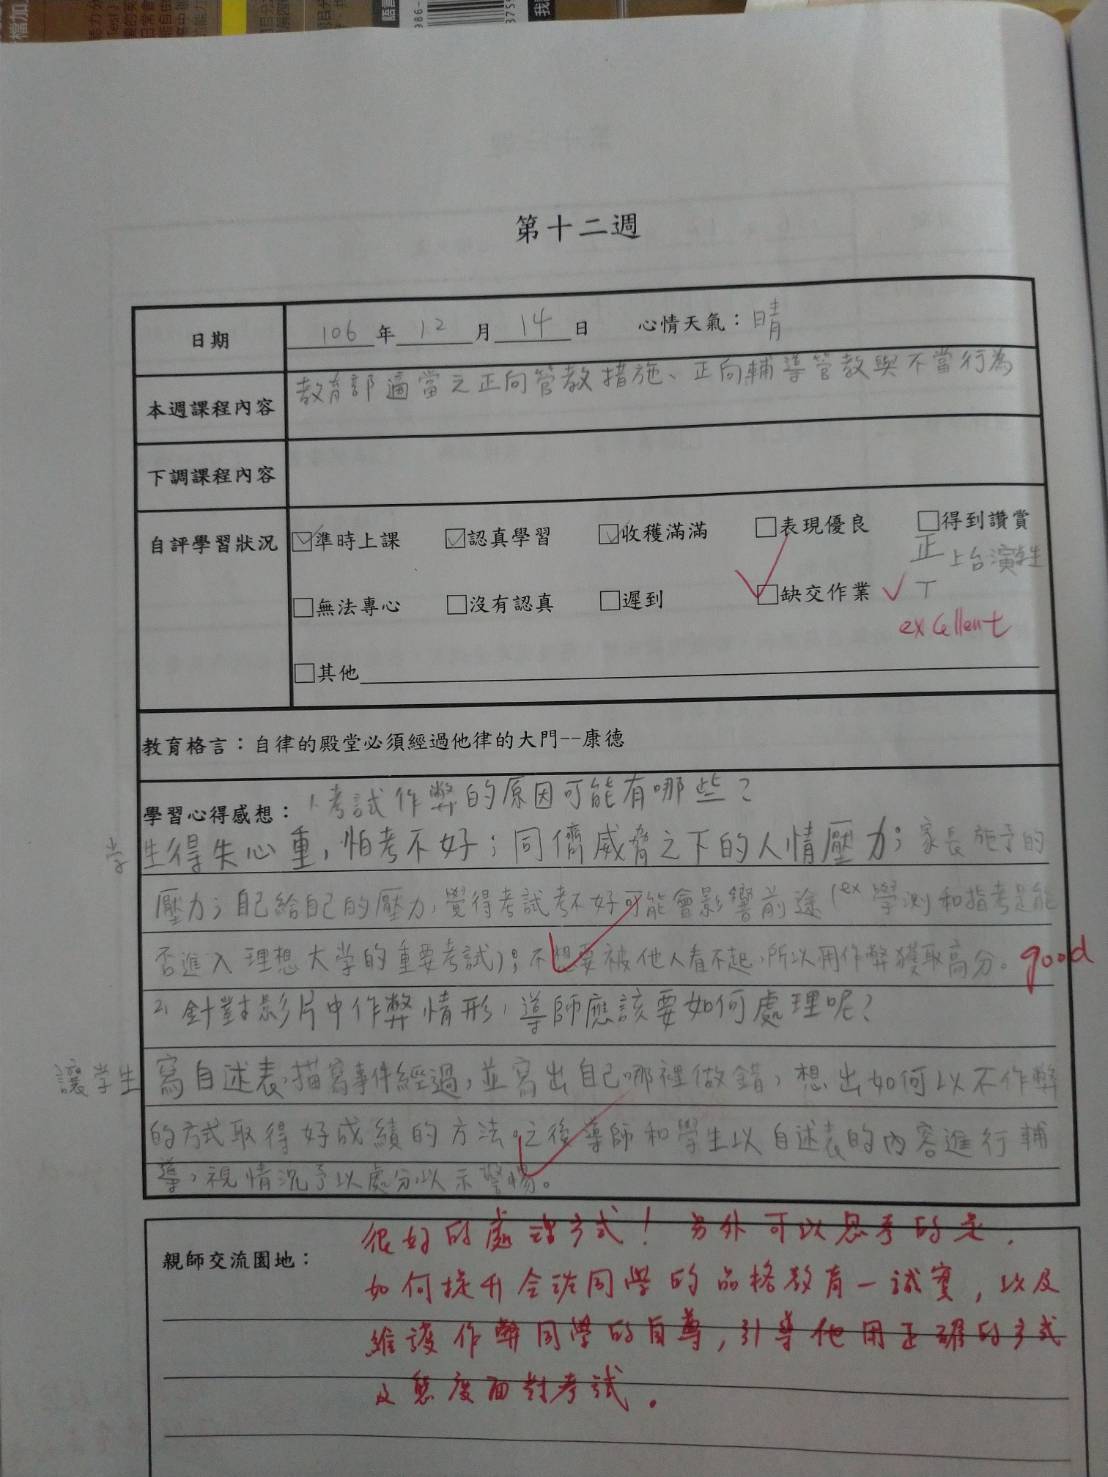 第十二週
日期 106年12月14日 心情天氣：晴
本週課程內容 教育部適當之正向管教措施、正向輔導管教與不當行為
下調課程內容
自評學習狀況 準時上課 認真學習 收穫滿滿 表現優良 得到讚賞
正 上台演
無法專心 沒有認真 遲到 缺交作業
excellent
其他
教育格言：自律的殿堂必須經過他律的大門--康德
學習心得感想：1.考試作弊的原因可能有哪些？
学生得失心重，怕考不好；同儕威脅之下的人情壓力；家長施予的
壓力；自己給自己的壓力，覺得考試考不好可能會影響前途(ex 學測和指考是能
否進入理想大学的重要考試)；不想要被他人看不起，所以用作弊獲取高分。 good
2.針對影片中作弊情形，導師應該要如何處理呢？
讓学生寫自述表，描寫事件經過，並寫出自己哪裡做錯，想出如何以不作弊
的方式取得好成績的方法。之後導師和學生以自述表的內容進行輔
導，視情況予以處分以示警惕。
親師交流園地：
很好的處理方式！另外可以思考的是，
如何提升全班同學的品格教育－誠實，以及
維護作弊同學的自尊，引導他用正確的方式
及態度面對考試。